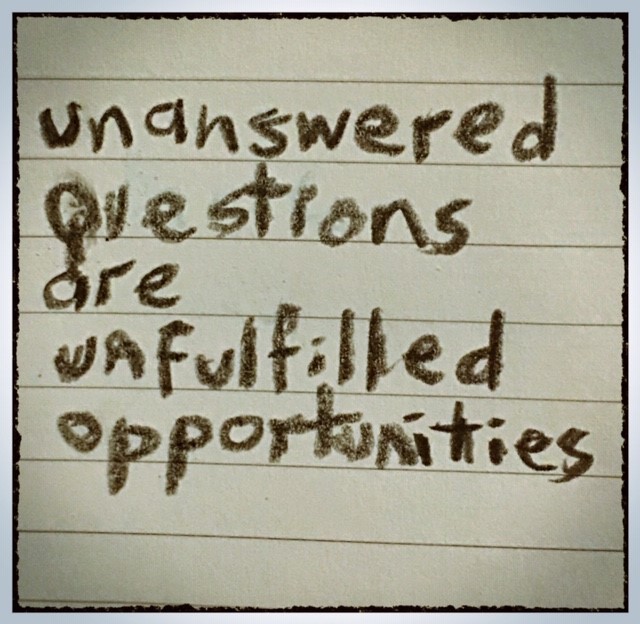 unanswered
questions
are
unfulfilled
opportunities